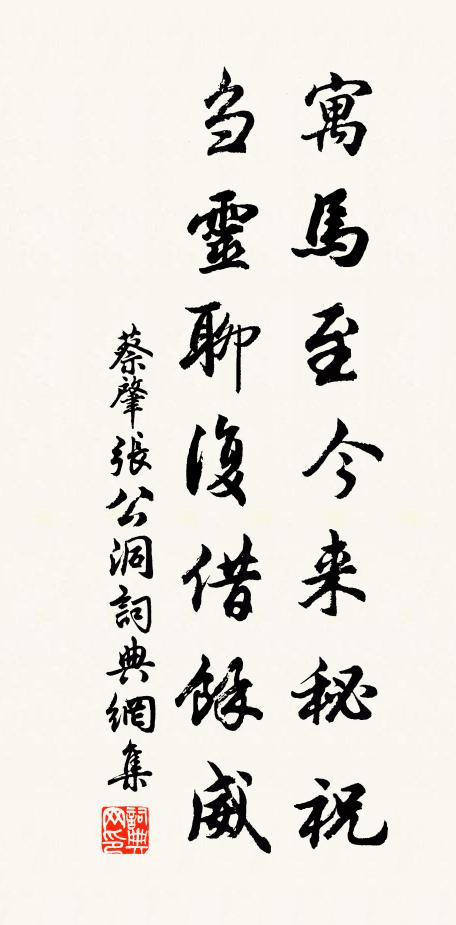 寓馬至今来秘祝
芻靈聊復借餘威
蔡肇張公洞詞典網集
詞典网印